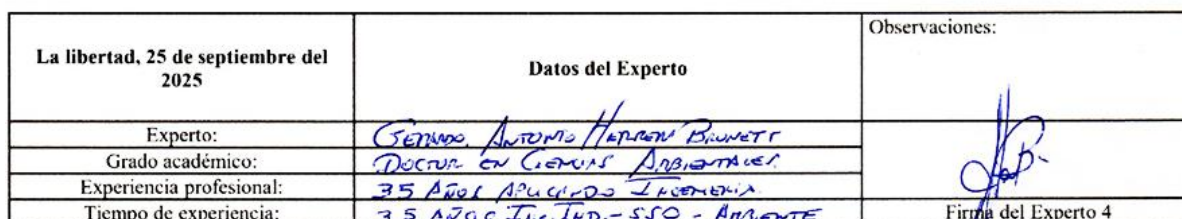 La libertad, 25 de septiembre del
2025
Datos del Experto
Observaciones:
Experto:
GERARDO ANTONIO HERRERA BRUNETT
Grado académico:
DOCTOR EN CIENCIAS AMBIENTALES
Experiencia profesional:
35 AÑOS APLICANDO INGENIERIA
Tiempo de experiencia:
35 AÑOS ING. IND - SSO - AMBIENTE
Firma del Experto 4